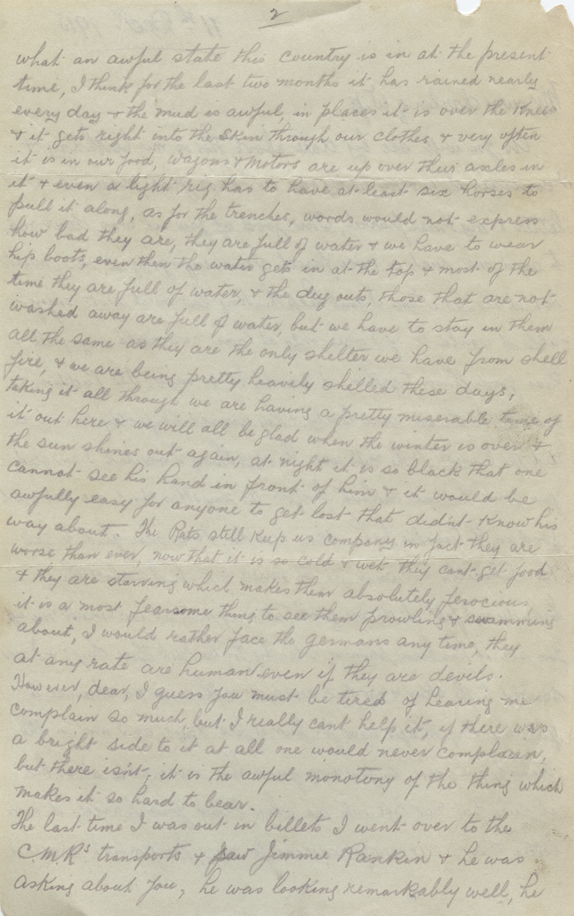 2
what an awful state this country is in at the present
time, I think for the last two months it has rained nearly
every day & the mud is awful, in places it is over the Knees
& it gets right into the Skin through our clothes & very often
it is in our food, wagons & Motors are up over their axles in
it & even a light rig has to have at least six horses to
pull it along, as for the trenches, words would not express
how bad they are, they are full of water & we have to wear
hip boots, even then the water gets in at the top & most of the
time they are full of water, & the dug outs, those that are not
washed away are full of water, but we have to stay in them
all the same as they are the only shelter we have from shell
fire, & we are being pretty heavily shelled these days,
taking it all through we are having a pretty miserable time of
it out here & we will all be glad when the winter is over &
the sun shines out again, at night it is so black that one
cannot see his hand in front of him & it would be
awfully easy for anyone to get lost that didnt Know his
way about. The Rats still Keep us company in fact they are
worse than ever, now that it is so cold & wet they cant get food
& they are starving which makes them absolutely ferocious
it is a most fearsome thing to see them prowling & swamming
about, I would rather face the germans any time, they
at any rate are human even if they are devils.
However, dear, I guess you must be tired of hearing me
complain so much, but I really cant help it, if there was
a bright side to it at all one would never complain,
but there isnt, it is the awful monotony of the thing which
makes it so hard to bear.
The last time I was out in billets I went over to the
CMRs transports & saw Jimmie Rankin & he was
asking about you, he was looking remarkably well, he